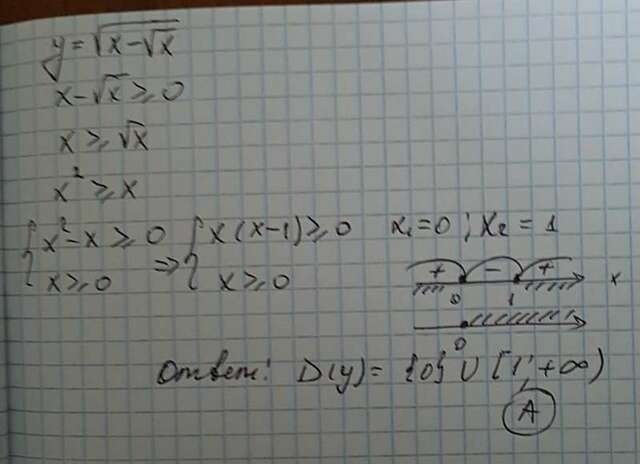 y = √(x - √x)
x - √x ≥ 0
x ≥ √x
x² ≥ x
{ x² - x ≥ 0 ; x ≥ 0 ⇒ { x(x-1) ≥ 0 ; x ≥ 0 x₁ = 0 ; x₂ = 1
+ - +
0 1 x
0
Ответ: D(y) = {0} ∪ [1; +∞)
A